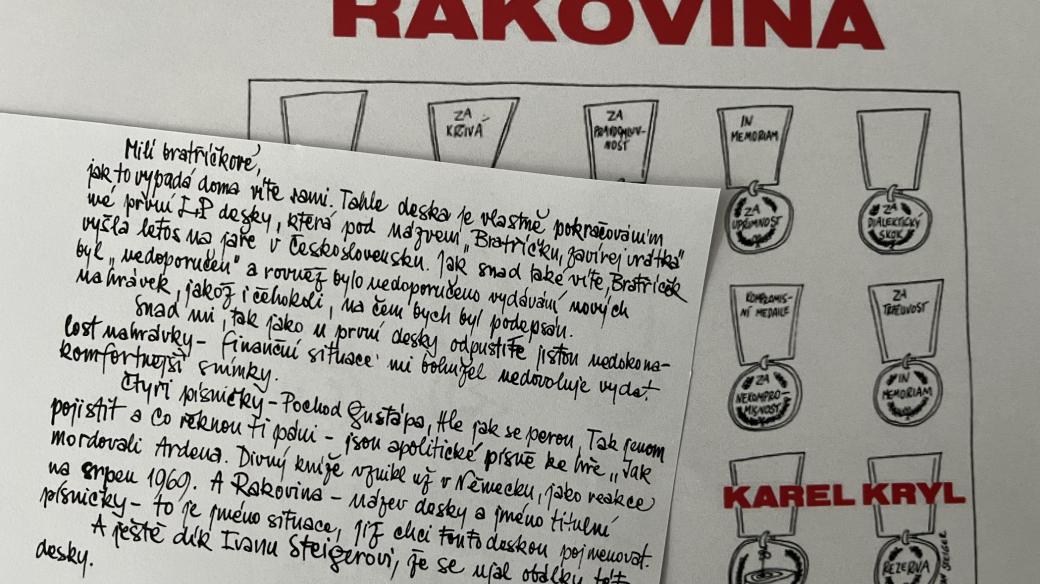 RAKOVINA
ZA
KŘIVÁ
ZA
PRAVDOMLUV-
NOST
IN
MEMORIAM
ZA
UPŘÍMNOST
ZA
DIALEKTICKÝ
SKOK
KOMPROMIS-
NÍ MEDAILE
ZA
NEKOMPRO-
MISNOST
ZA
IN
MEMORIAM
KAREL KRYL
REZERVA
STEIGER
Milí bratříčkové,
jak to vypadá doma víte sami. Tahle deska je vlastně pokračováním
mé první LP desky, která pod názvem „Bratříčku, zavírej vrátka"
vyšla letos na jaře v Československu. Jak snad také víte, Bratříček
byl „nedoporučen" a rovněž bylo nedoporučeno vydávání nových
nahrávek, jakož i čehokoli, na čem bych byl podepsán.
Snad mi, tak jako u první desky odpustíte jistou nedokona-
lost nahrávky - finanční situace mi bohužel nedovoluje vydat
komfortnější snímky.
Čtyři písničky - Pochod Gustápa, Hle jak se perou, Tak jenom
pojistit a Co řeknou ti páni - jsou apolitické písně ke hře „Jak
mordovali Ardena. Divný kníže vznikl už v Německu, jako reakce
na srpen 1969. A Rakovina - název desky a jméno titulní
písničky - to je jméno situace, jíž chci touto deskou pojmenovat.
A ještě dík Ivanu Steigerovi, že se ujal obálky této
desky.